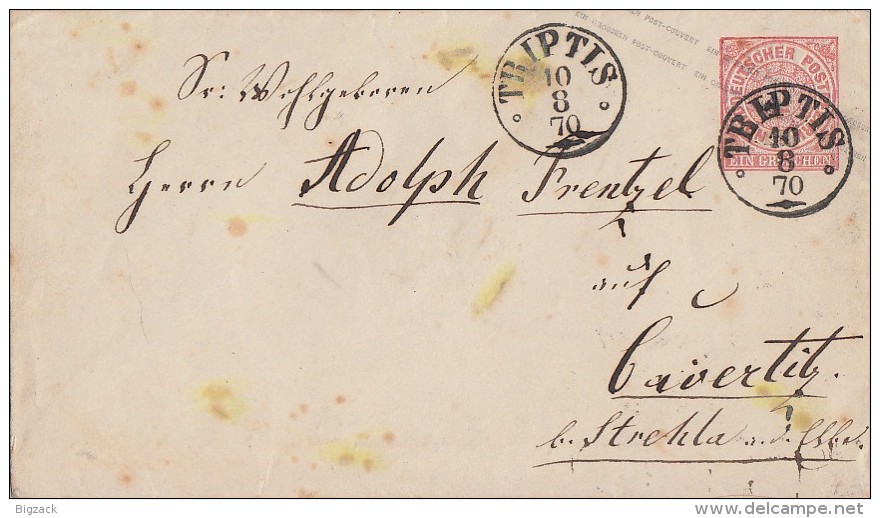 EIN GROSCHEN POST-COUVERT EIN
POST-COUVERT EIN
TRIPTIS
10
8
70
DEUTSCHER POST
EIN GROSCHEN
TRIPTIS
10
8
70
Sr: Wohlgeboren
Herrn Adolph Frentzel
auf
Cavertitz.
b. Strehla a. d. Elbe.
Bigzack
delcampe.net